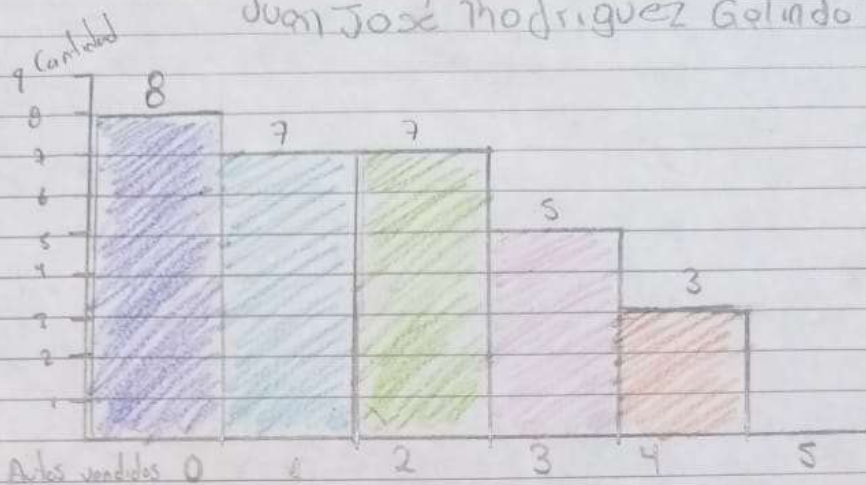 Juan José Rodriguez Galindo
Cantidad
9
8
8
7
7
7
6
5
5
4
3
3
2
1
Autos vendidos 0 1 2 3 4 5